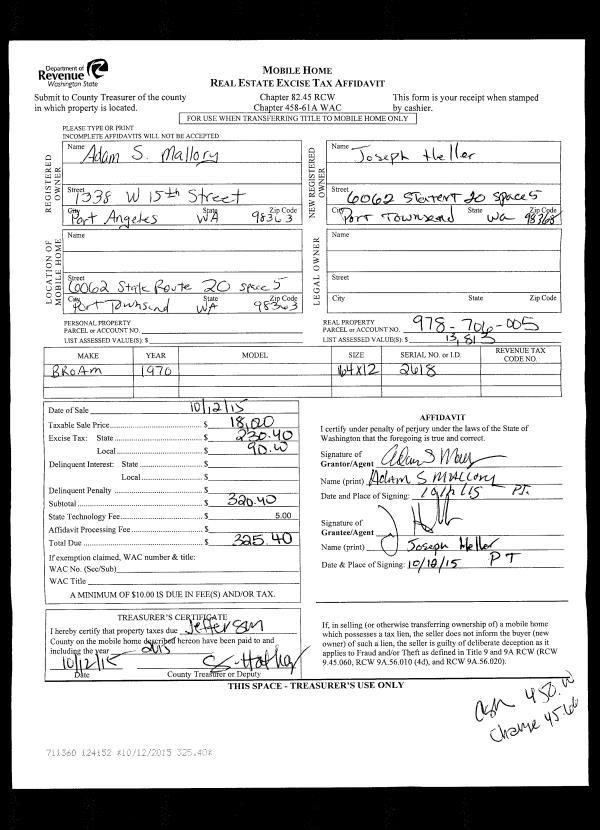 Department of
Revenue
Washington State
MOBILE HOME
REAL ESTATE EXCISE TAX AFFIDAVIT
Submit to County Treasurer of the county
in which property is located.
Chapter 82.45 RCW
Chapter 458-61A WAC
This form is your receipt when stamped
by cashier.
FOR USE WHEN TRANSFERRING TITLE TO MOBILE HOME ONLY
PLEASE TYPE OR PRINT
INCOMPLETE AFFIDAVITS WILL NOT BE ACCEPTED
REGISTERED OWNER
Name Adam S. Mallory
Street 1338 W 15th Street
City Port Angeles State WA Zip Code 98363
NEW REGISTERED OWNER
Name Joseph Heller
Street 6062 20 Space 5
City Port Townsend State Wa Zip Code 98368
LOCATION OF MOBILE HOME
Name
Street 6062 State Route 20 space 5
City Port Townsend State WA Zip Code 98363
LEGAL OWNER
Name
Street
City State Zip Code
PERSONAL PROPERTY
PARCEL or ACCOUNT NO.
LIST ASSESSED VALUE(S): $
REAL PROPERTY
PARCEL or ACCOUNT NO. 978-706-005
LIST ASSESSED VALUE(S): $ 13,813
MAKE YEAR MODEL SIZE SERIAL NO. or I.D. REVENUE TAX CODE NO.
BROAM 1970 64x12 2618
Date of Sale 10/12/15
Taxable Sale Price $
Excise Tax: State $ 230.40
Local $ 90.00
Delinquent Interest: State $
Local $
Delinquent Penalty $
Subtotal $ 320.40
State Technology Fee $ 5.00
Affidavit Processing Fee $
Total Due $ 325.40
If exemption claimed, WAC number & title:
WAC No. (Sec/Sub)
WAC Title
A MINIMUM OF $10.00 IS DUE IN FEE(S) AND/OR TAX.
AFFIDAVIT
I certify under penalty of perjury under the laws of the State of
Washington that the foregoing is true and correct.
Signature of
Grantor/Agent
Name (print) Adam S Mallory
Date and Place of Signing: 10/12/15 PT.
Signature of
Grantee/Agent
Name (print) Joseph Heller
Date & Place of Signing: 10/12/15 PT
TREASURER'S CERTIFICATE
I hereby certify that property taxes due Jefferson
County on the mobile home described hereon have been paid to and
including the year 2015
10/12/15
Date County Treasurer or Deputy
If, in selling (or otherwise transferring ownership of) a mobile home
which possesses a tax lien, the seller does not inform the buyer (new
owner) of such a lien, the seller is guilty of deliberate deception as it
applies to Fraud and/or Theft as defined in Title 9 and 9A RCW (RCW
9.45.060, RCW 9A.56.010 (4d), and RCW 9A.56.020).
THIS SPACE - TREASURER'S USE ONLY
Cash 450.00
Change
711360 124152 *10/12/2015 325.40*